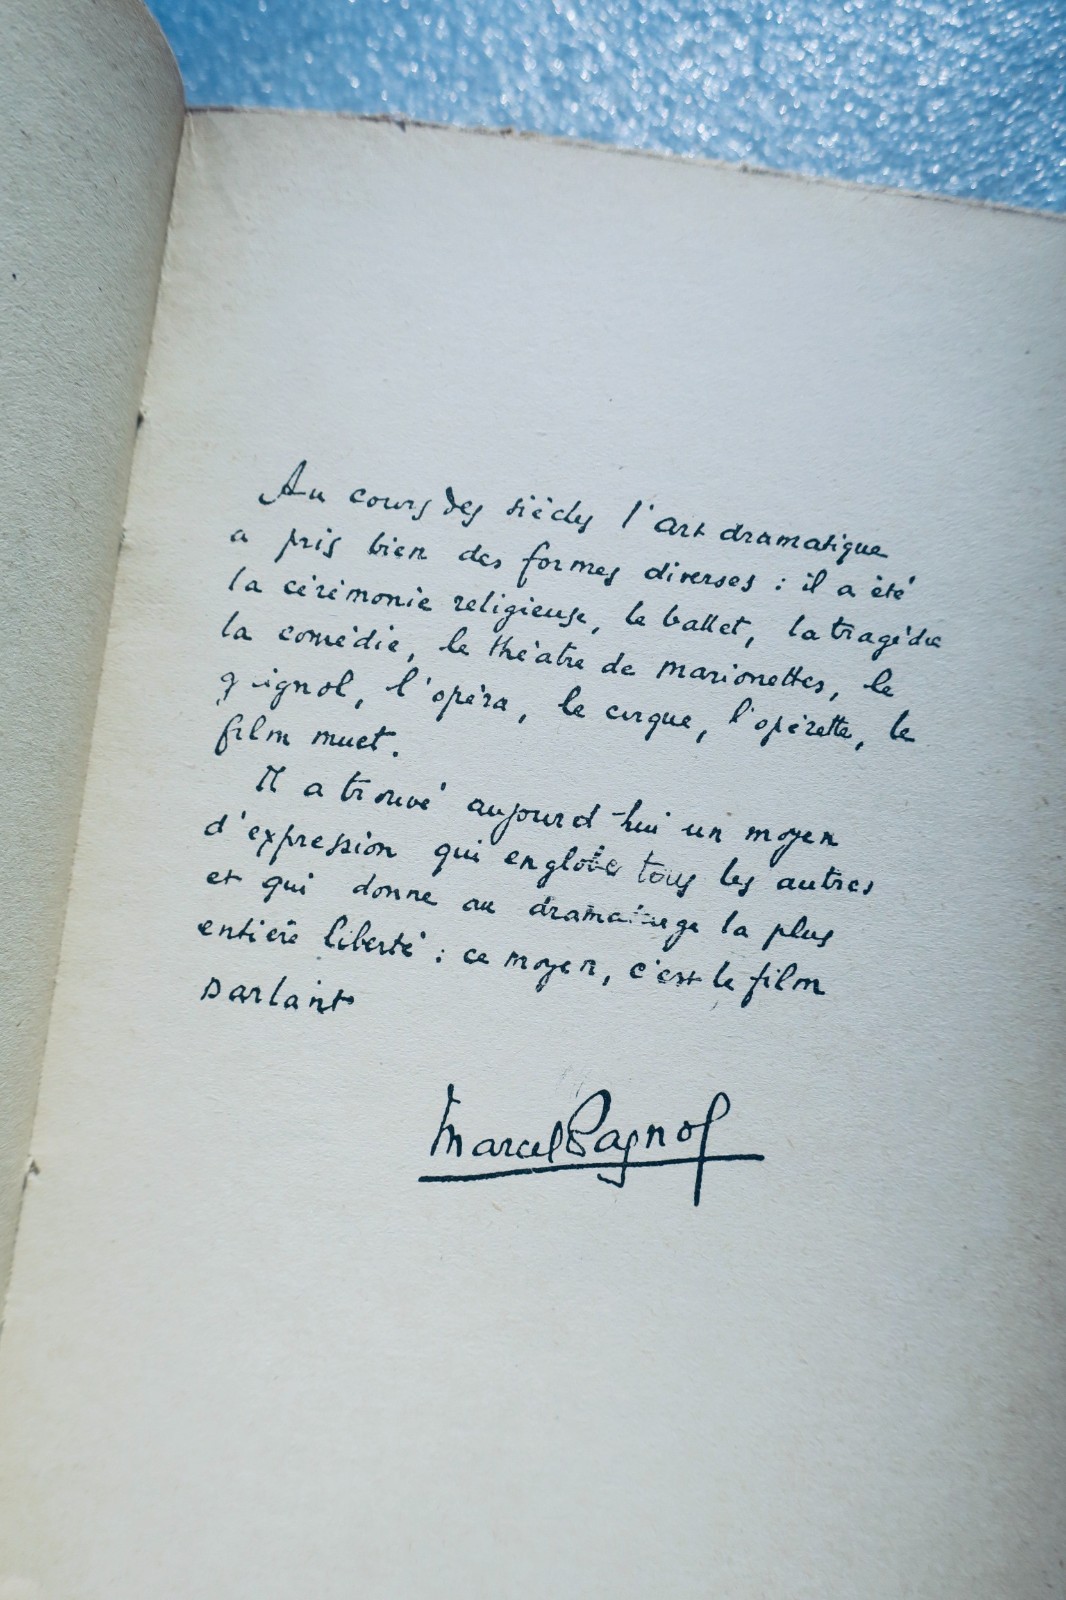 Au cours des siècles l'art dramatique
a pris bien des formes diverses : il a été
la cérémonie religieuse, le ballet, la tragédie
la comédie, le théatre de marionettes, le
guignol, l'opéra, le cirque, l'opérette, le
film muet.
Il a trouvé aujourd'hui un moyen
d'expression qui englobe tous les autres
et qui donne au dramaturge la plus
entière liberté : ce moyen, c'est le film
parlant
Marcel Pagnol